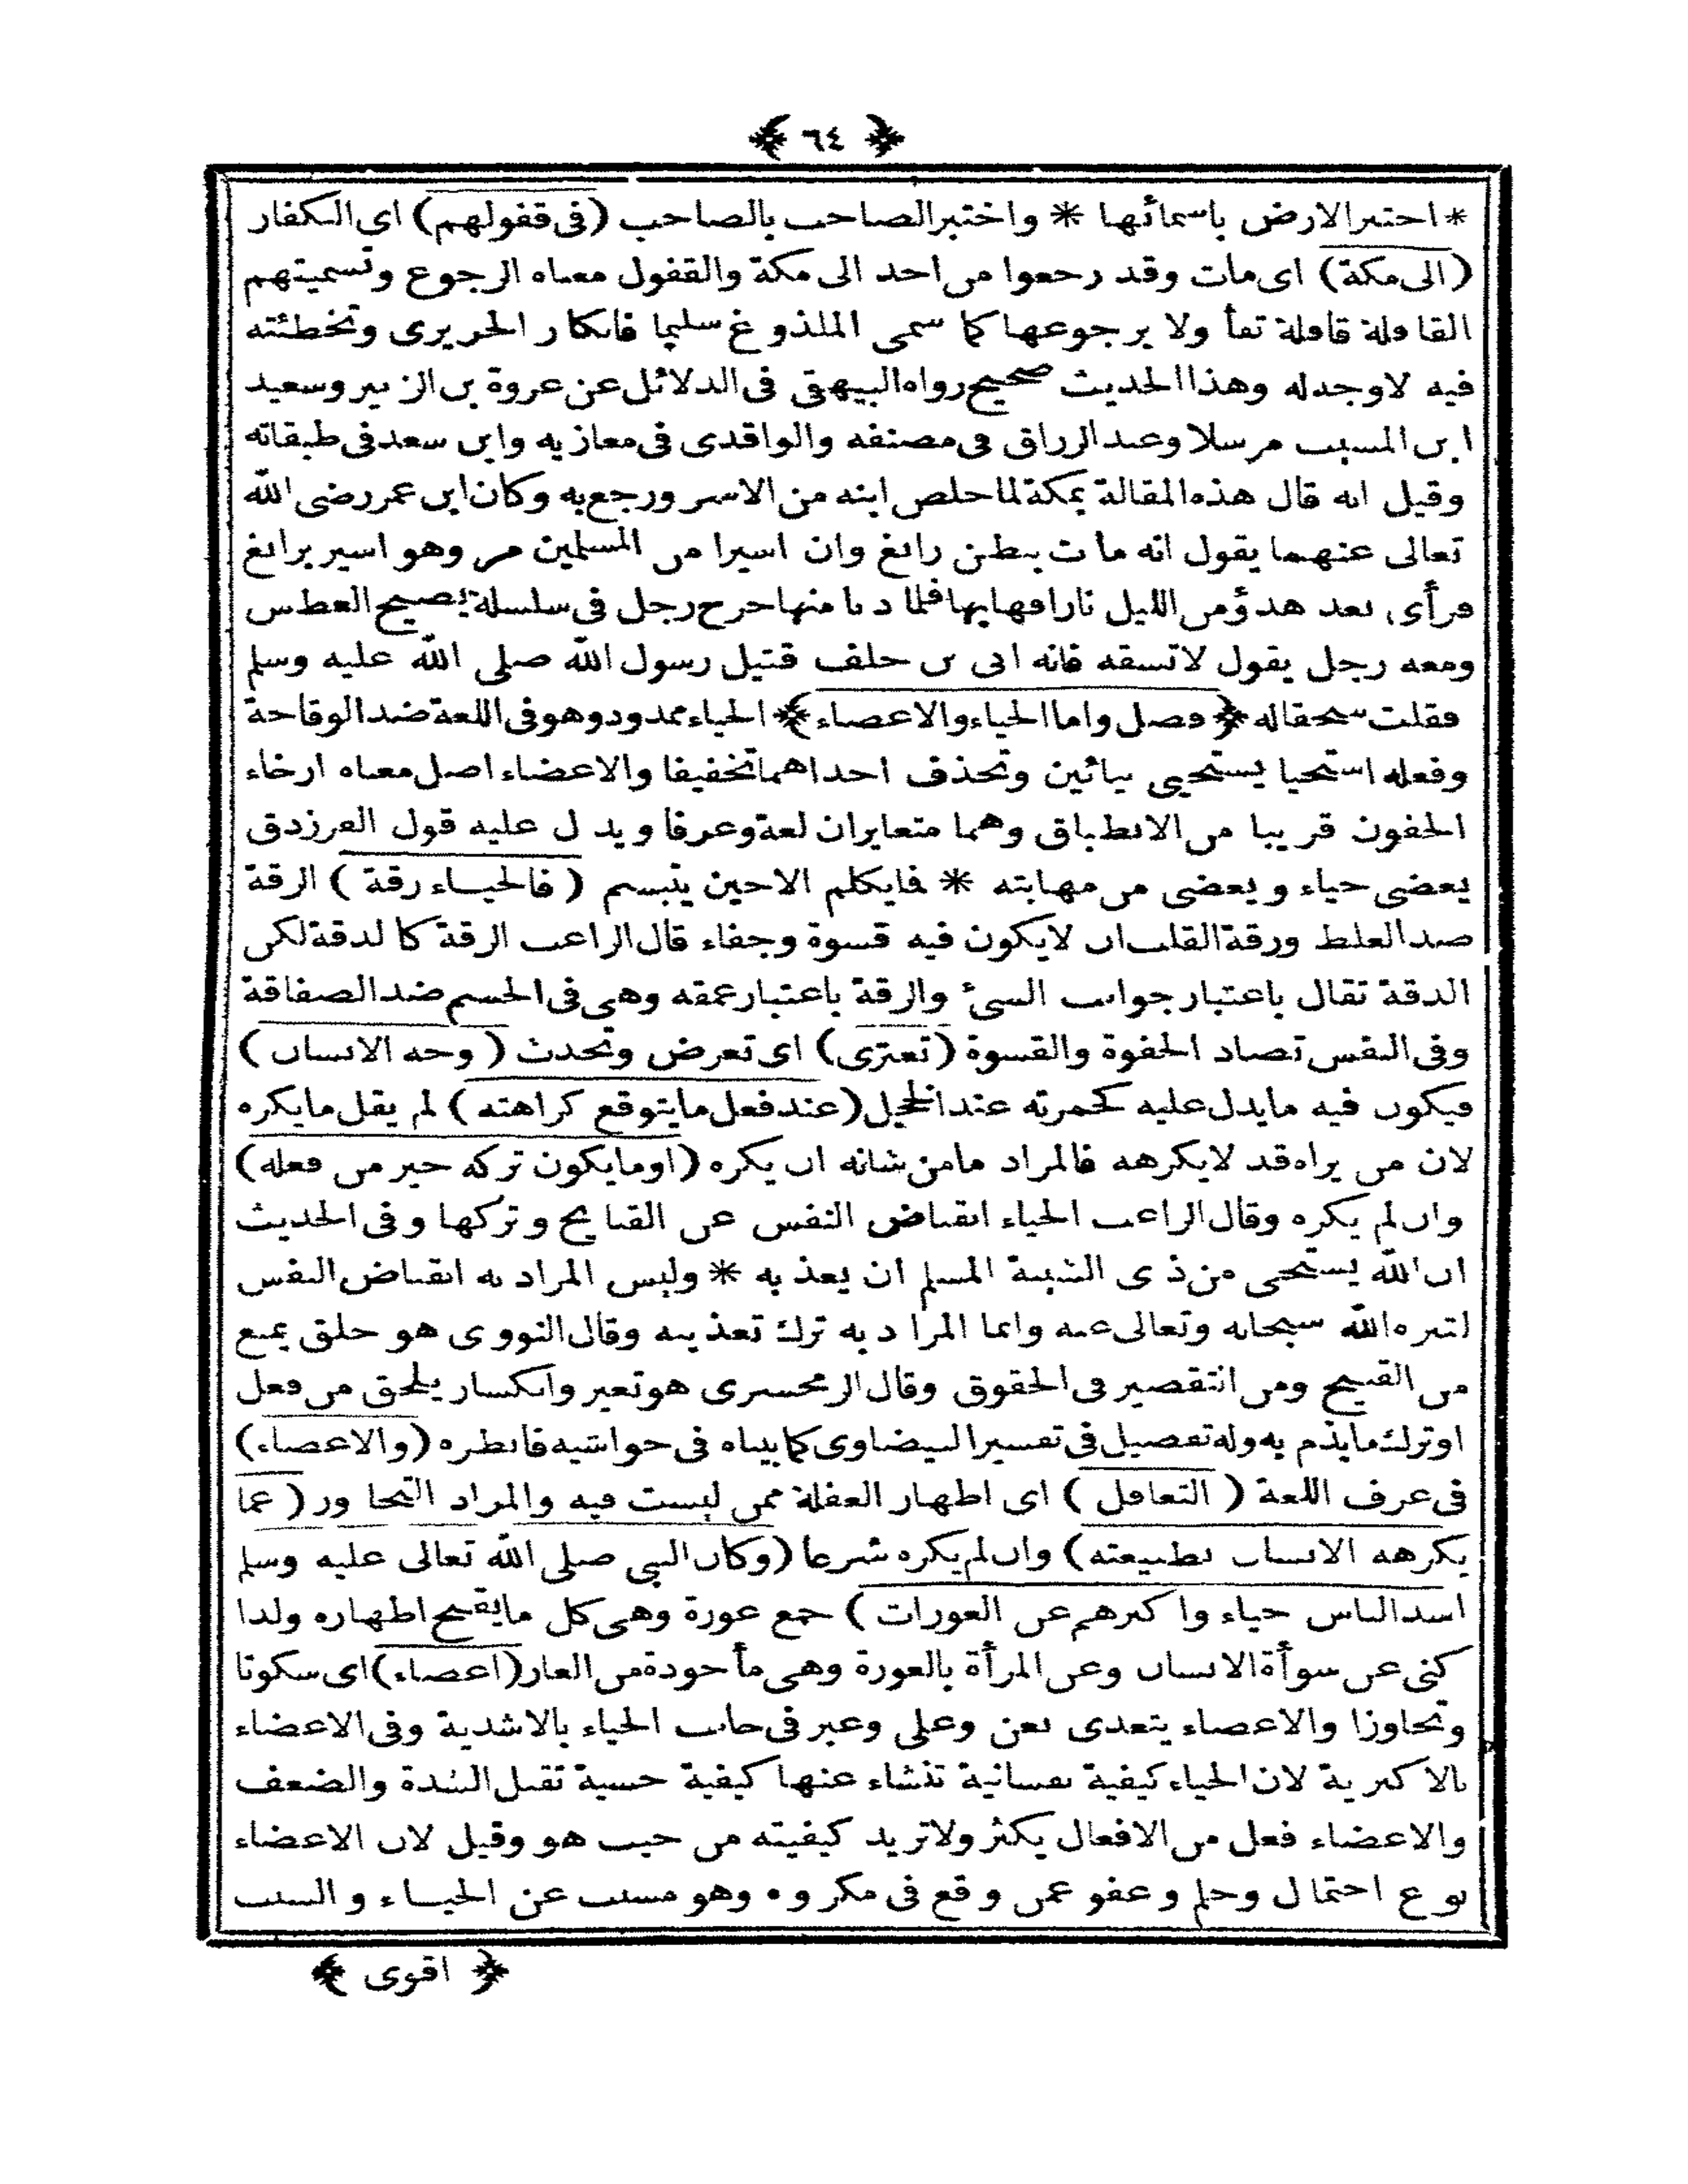 ﴿ ٦٤ ﴾
* اختبر الارض باسمائها * واختبر الصاحب بالصاحب (فى قفولهم) اى الكفار
(الى مكة) اى مات وقد رجعوا من احد الى مكة والقفول معناه الرجوع وتسميتهم
القافلة قافلة تفأ ولا برجوعها كما سمى الملذوغ سليما فانكار الحريرى وتخطئته
فيه لاوجه له وهذا الحديث صحيح رواه البيهقى فى الدلائل عن عروة بن الزبير وسعيد
ابن المسيب مرسلا وعبد الرزاق فى مصنفه والواقدى فى معازيه وابن سعد فى طبقاته
وقيل انه قال هذه المقالة بمكة لما خلص ابنه من الاسر ورجع به وكان ابن عمر رضى الله
تعالى عنهما يقول انه مات ببطن رابغ وان اسيرا من المسلمين مر وهو اسير برابغ
فرأى بعد هدؤ من الليل نارا فهابها فلما دنا منها خرج رجل فى سلسلة يصيح العطس
ومعه رجل يقول لاتسقه فانه ابى بن خلف قتيل رسول الله صلى الله عليه وسلم
فقلت سحقا له ﴿فصل واما الحياء والاغضاء﴾ الحياء ممدود وهو فى اللغة ضد الوقاحة
وفعله استحيا يستحيى بيائين وتحذف احداهما تخفيفا والاغضاء اصل معناه ارخاء
الجفون قريبا من الانطباق وهما متغايران لغة وعرفا ويدل عليه قول الفرزدق
يغضى حياء ويغضى من مهابته * فايكلم الاحين يبتسم (فالحياء رقة) الرقة
ضد الغلظ ورقة القلب ان لايكون فيه قسوة وجفاء قال الراغب الرقة كالدقة لكن
الدقة تقال باعتبار جوانب الشئ والرقة باعتبار عمقه وهى فى الجسم ضد الصفاقة
وفى النفس تضاد الجفوة والقسوة (تعترى) اى تعرض وتحدث (وجه الانسان)
فيكون فيه مايدل عليه كحمرته عند الخجل (عند فعل مايتوقع كراهته) لم يقل مايكره
لان من يراه قد لايكرهه فالمراد مامن شانه ان يكره (اومايكون تركه خير من فعله)
وان لم يكره وقال الراغب الحياء انقباض النفس عن القبايح وتركها وفى الحديث
ان الله يستحى من ذى الشيبة المسلم ان يعذبه * وليس المراد به انقباض النفس
لتنزه الله سبحانه وتعالى عنه وانما المراد به ترك تعذيبه وقال النووى هو خلق يمنع
من القبيح ومن التقصير فى الحقوق وقال الزمخشرى هو تغير وانكسار يلحق من فعل
اوترك مايذم به وله تفصيل فى تفسير البيضاوى كما بيناه فى حواشيه فانظره (والاغضاء)
فى عرف اللغة (التغافل) اى اظهار الغفلة ممن ليست فيه والمراد التجاوز (عما
يكرهه الانسان بطبيعته) وان لم يكره شرعا (وكان النبى صلى الله تعالى عليه وسلم
اشد الناس حياء واكثرهم عن العورات) جمع عورة وهى كل مايقبح اظهاره ولذا
كنى عن سوأة الانسان وعن المرأة بالعورة وهى مأخوذة من العار (اغضاء) اى سكوتا
وتجاوزا والاغضاء يتعدى بعن وعلى وعبر فى جانب الحياء بالاشدية وفى الاغضاء
بالاكثرية لان الحياء كيفية نفسانية تنشاء عنها كيفية حسية تقبل الشدة والضعف
والاغضاء فعل من الافعال يكثر ولاتزيد كيفيته من حيث هو وقيل لان الاغضاء
نوع احتمال وحلم وعفو عمن وقع فى مكروه وهو مسبب عن الحياء والسبب
﴿ اقوى ﴾